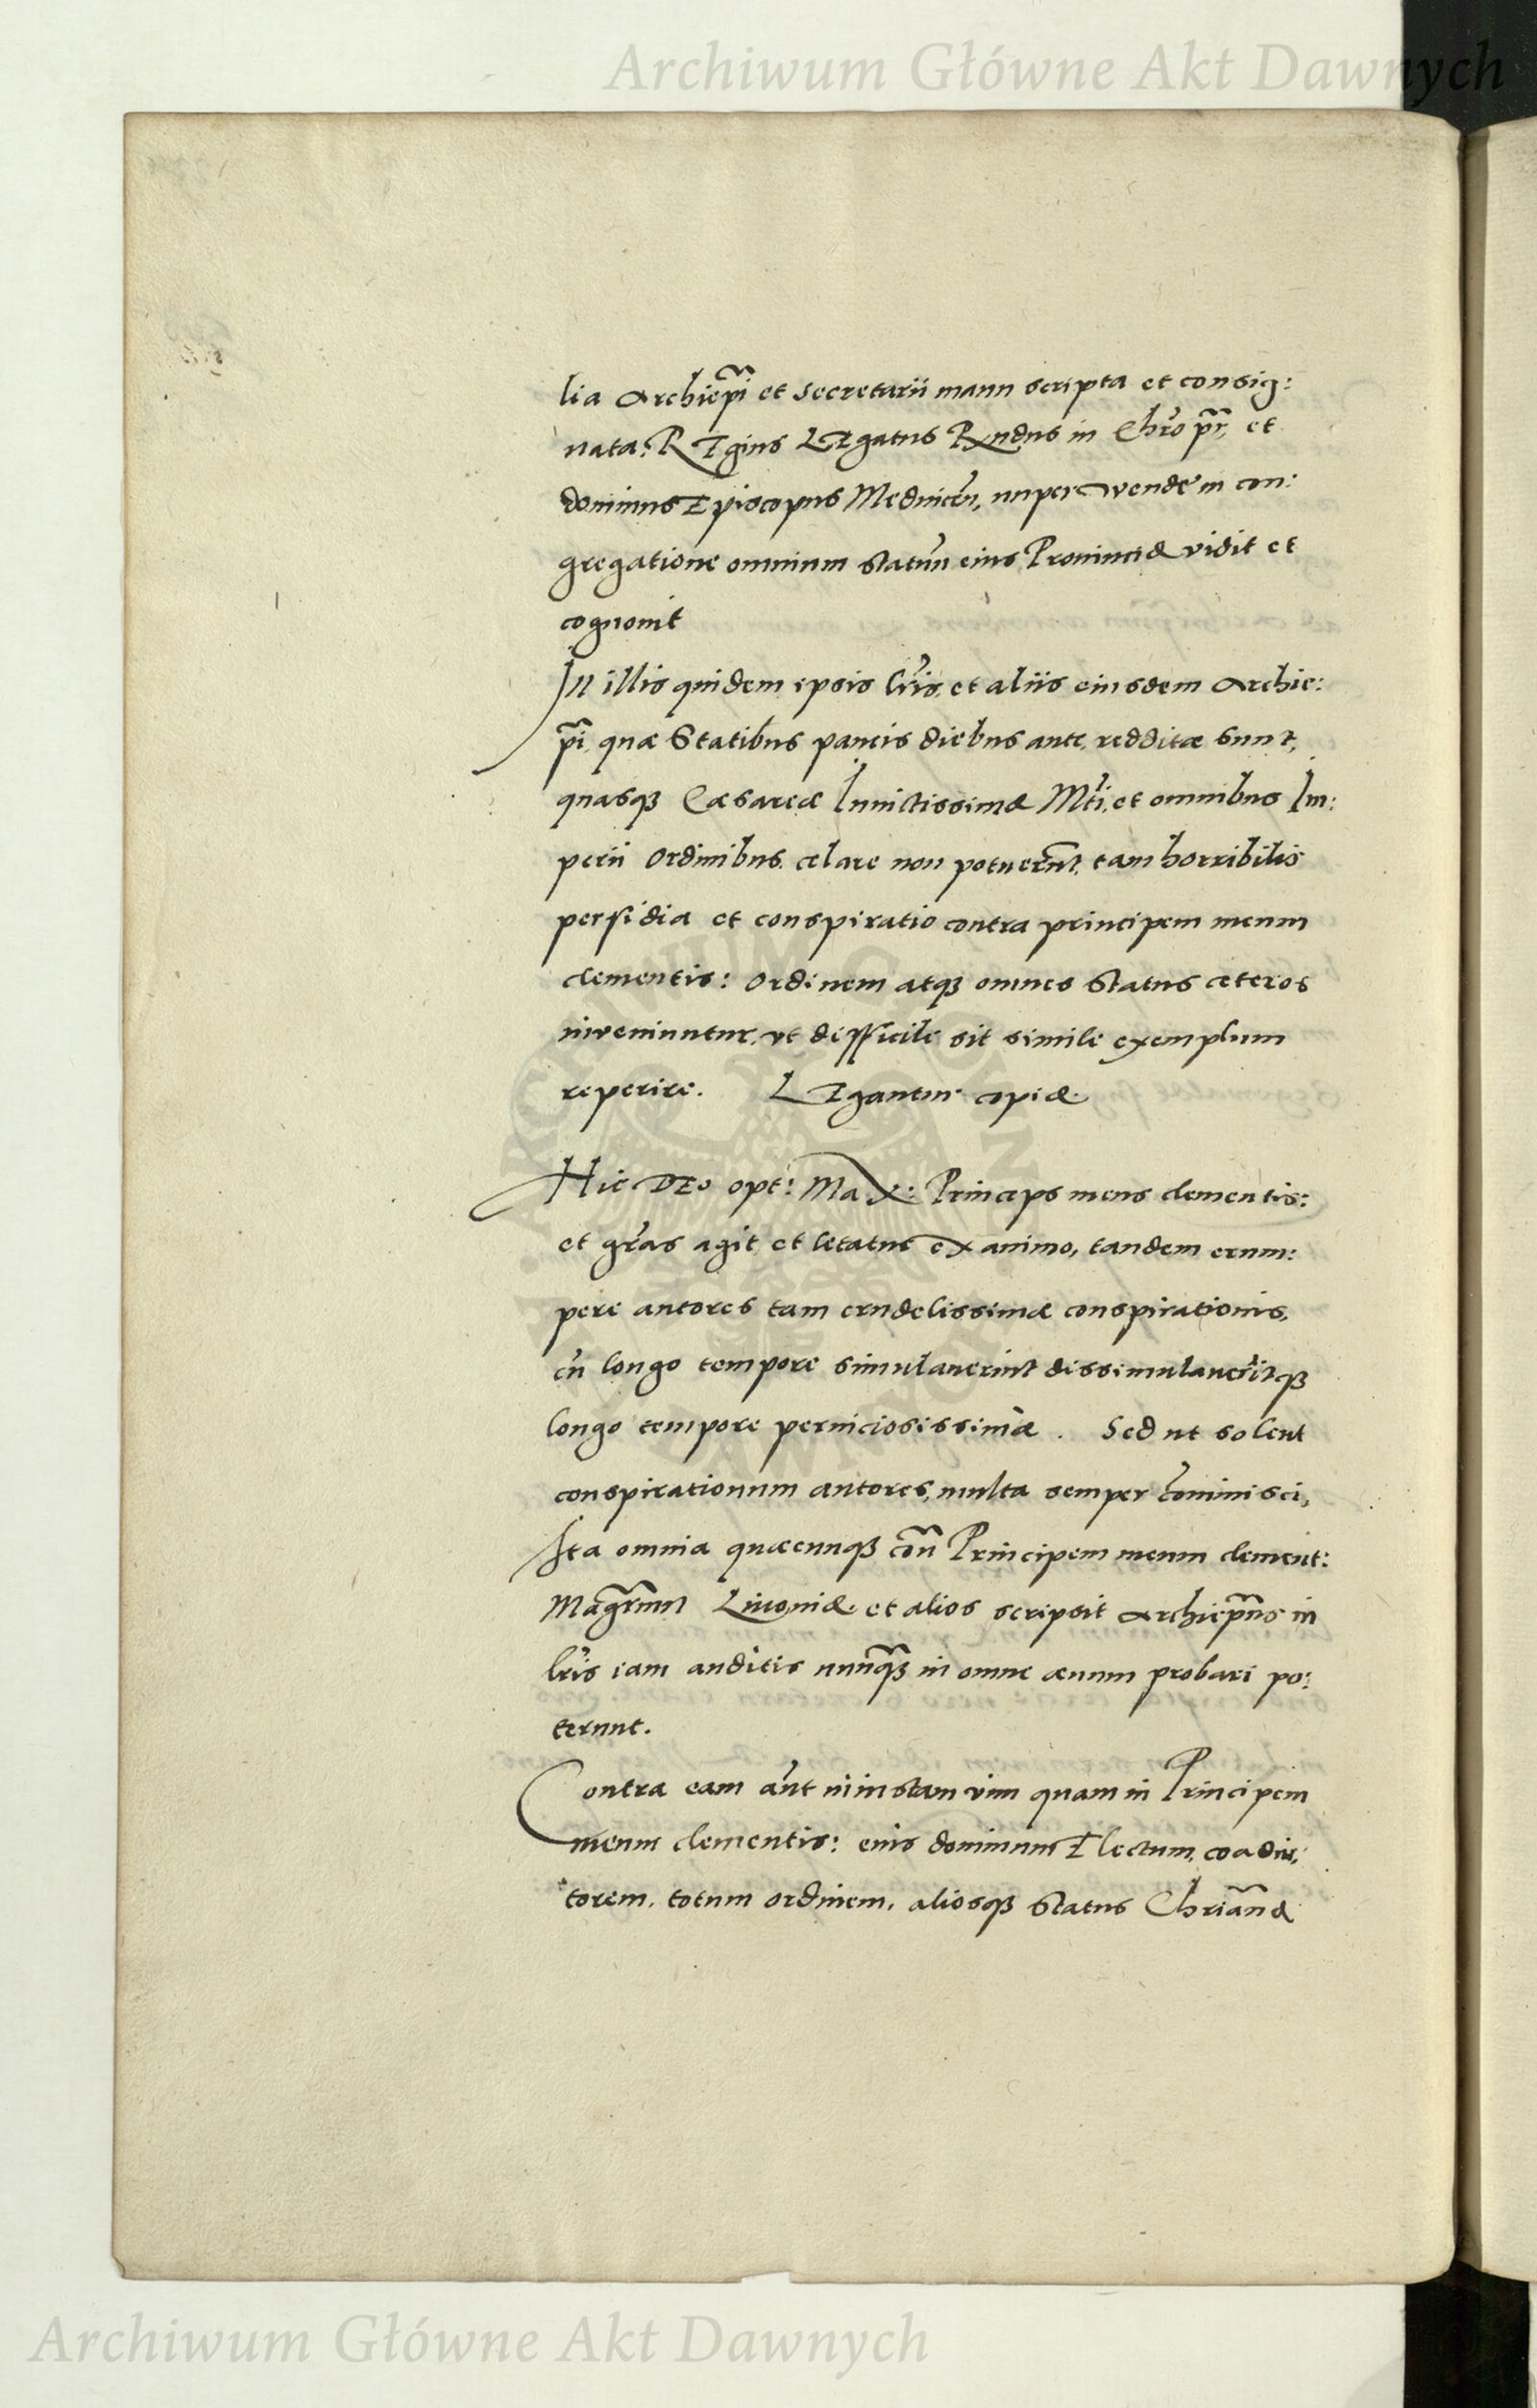 Archiwum Główne Akt Dawnych
lia Archiepĩ et secretarii manu scripta et consig:
nata: REgius LEgatus Rxndus in Chrõ pr̃, et
dominus Episcopus Mednicẽn, nuper Wende in con:
gregatione omnium statũu eius Prouinciæ vidit et
cognouit
In illis quidem ipsis lr̃is, et aliis eiusdem Archie:
pĩ, quæ Statibus paucis diebus ante, redditæ sunt,
quasqꝫ Cæsareæ Inuictissimæ Mtĩ, et omnibus Im:
perii Ordinibus, celare non potuerũt, tam horribilis
perfidia et conspiratio contra principem meum
clementis: Ordinem atqꝫ omnes status ceteros
inveniuntur, vt difficile sit simile exemplum
reperire. LEgantur copiæ.
Hic DEo opt: Max: Princeps meus clementis:
et gr̃as agit et letatur ex animo, tandem erum:
pere autores tam crudelissimæ conspirationis,
cũ longo tempore simulauerint dissimulauerĩtqꝫ
longo tempore perniciosissimæ. Sed ut solent
conspirationum autores, multa semper cõminisci,
Ita omnia quæcunqꝫ cõn Principem meum clement:
Magr̃um Liuoniæ et alios scripsit Archiepũs in
lr̃is iam auditis nunqꝫ in omne æuum probari po:
terunt.
Contra eam aũt iniustam vim quam in Principem
meum clementis: eius dominum Electum, coadiu:
torem, totum ordinem, aliosqꝫ status Chriãnæ
Archiwum Główne Akt Dawnych